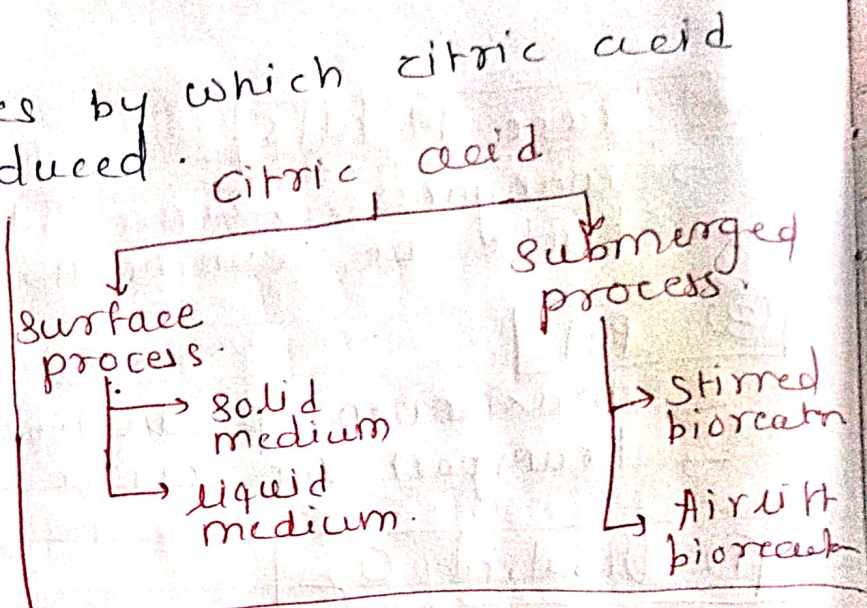 es by which citric acid
duced.
Citric acid
surface
process.
solid
medium
liquid
medium.
submerged
process.
stirred
Airlift